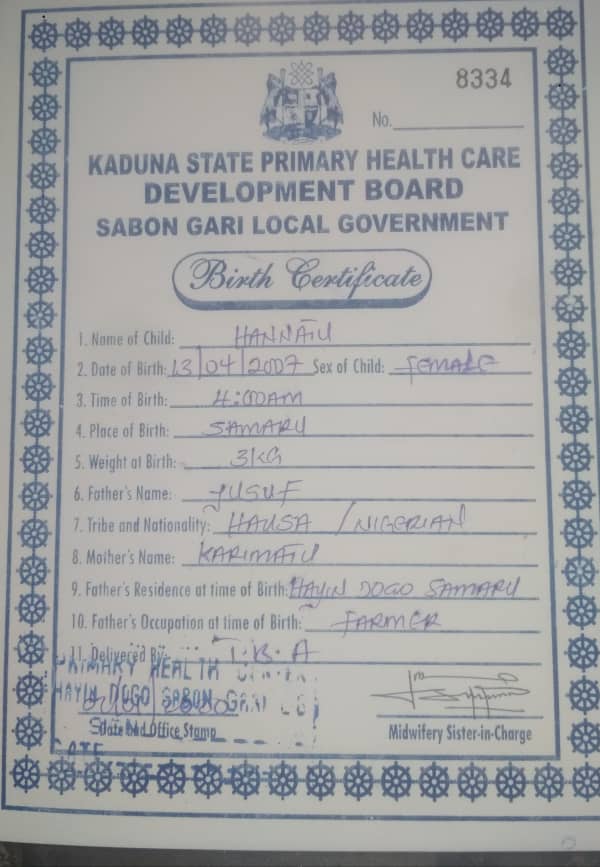 8334
No.
KADUNA STATE PRIMARY HEALTH CARE
DEVELOPMENT BOARD
SABON GARI LOCAL GOVERNMENT
Birth Certificate
1. Name of Child: HANNATU
2. Date of Birth: 13/04/2007 Sex of Child: FEMALE
3. Time of Birth: 4:00AM
4. Place of Birth: SAMARU
5. Weight at Birth: 3KG
6. Father's Name: YUSUF
7. Tribe and Nationality: HAUSA / NIGERIAN
8. Mother's Name: KARIMATU
9. Father's Residence at time of Birth: HAYIN DOGO SAMARU
10. Father's Occupation at time of Birth: FARMER
11. Delivered By: T.B.A
PRIMARY HEALTH
HAYIN DOGO SABON GARI
Date and Office Stamp
Midwifery Sister-in-Charge
DATE